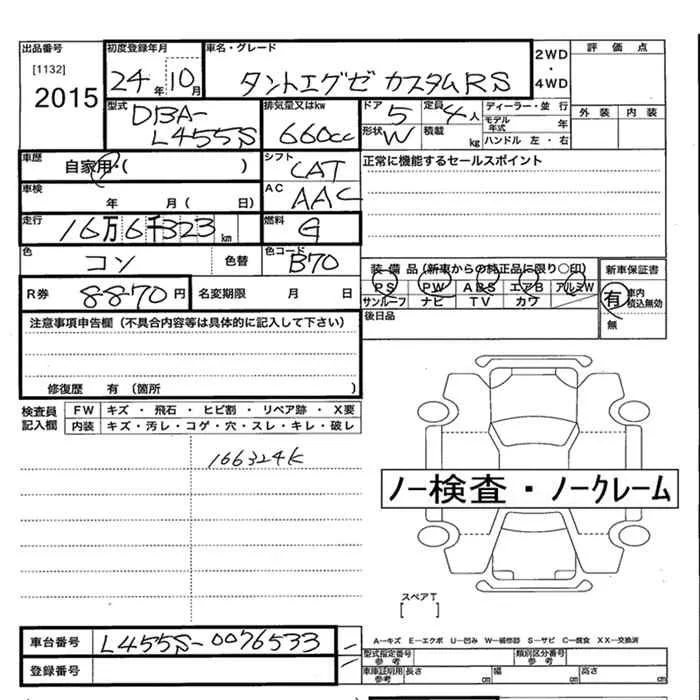 出品番号 初度登録年月 車名・グレード 2WD・4WD 評価点
[1132] 24年10月 タントエグゼ カスタムRS
2015
型式 DBA-L455S 排気量又はkw 660cc ドア 5 定員 4人 ディーラー・並行 外装 内装
形状 W 積載 kg モデル年式 年
ハンドル 左・右
車歴 自家用・( ) シフト CAT 正常に機能するセールスポイント
車検 年 月( 日) AC AAC
走行 16万6千323km 燃料 G
色 コン 色替 色コード B70 装備品(新車からの純正品に限り○印) 新車保証書
PS PW ABS エアB アルミW 有 車内積込無効
サンルーフ ナビ TV カワ 無
R券 8870円 名変期限 月 日 後日品
注意事項申告欄(不具合内容等は具体的に記入して下さい)
修復歴 有(箇所 )
検査員記入欄 FW キズ・飛石・ヒビ割・リペア跡・X要
内装 キズ・汚レ・コゲ・穴・スレ・キレ・破レ
166324K
ノー検査・ノークレーム
スペアT
[ ]
車台番号 L455S-0076533 A-キズ E-エクボ U-凹み W-補修跡 S-サビ C-腐食 XX-交換済
登録番号 型式指定番号 参考 類別区分番号 参考
車庫証明用 参考 長さ cm 幅 cm 高さ cm